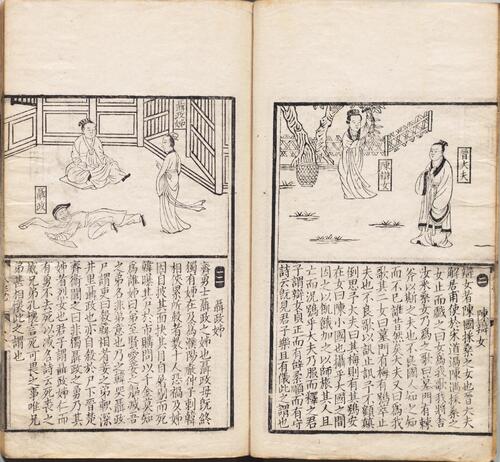 晉大夫
陳辯女
陳辯女
辯女者陳國採桑之女也晉大夫
解居甫使於宋道過陳遇採桑之
女止而戲之曰女為我歌我將舍
汝采桑女乃為之歌曰墓門有棘
斧以斯之夫也不良國人知之知
而不已誰昔然矣大夫又曰為我
歌其二女曰墓門有楳有鴞萃止
夫也不良歌以訊止訊予不顧顛
倒思予大夫曰其楳則有其鴞安
在女曰陳小國也攝乎大國之間
因之以飢餓加之以師旅其人且
亡而況鴞乎大夫乃服而釋之君
子謂辯女貞正而有辭柔順而有守
詩云既見君子樂且有儀此之謂也
聶政姊
聶政
聶政姊
齊勇士聶政之姊也聶政母既終
獨有姊在及為濮陽嚴仲子刺韓
相俠累所殺者數十人恐禍及姊
因自披其面抉其目自屠剔而死
韓暴其尸於市購問以千金莫知
為誰姊曰弟至賢愛妾之軀滅吾
之弟名非弟意也乃之韓哭聶政
尸謂吏曰殺韓相者妾之弟軹深
井里聶政也亦自殺於尸下晉楚
齊衛聞之曰非獨聶政之勇乃其
姊者烈女也君子謂聶政姊仁而
有勇不去死以滅名詩云死喪之
威兄弟孔懷言死可畏之事唯兄
弟甚相懷此之謂也